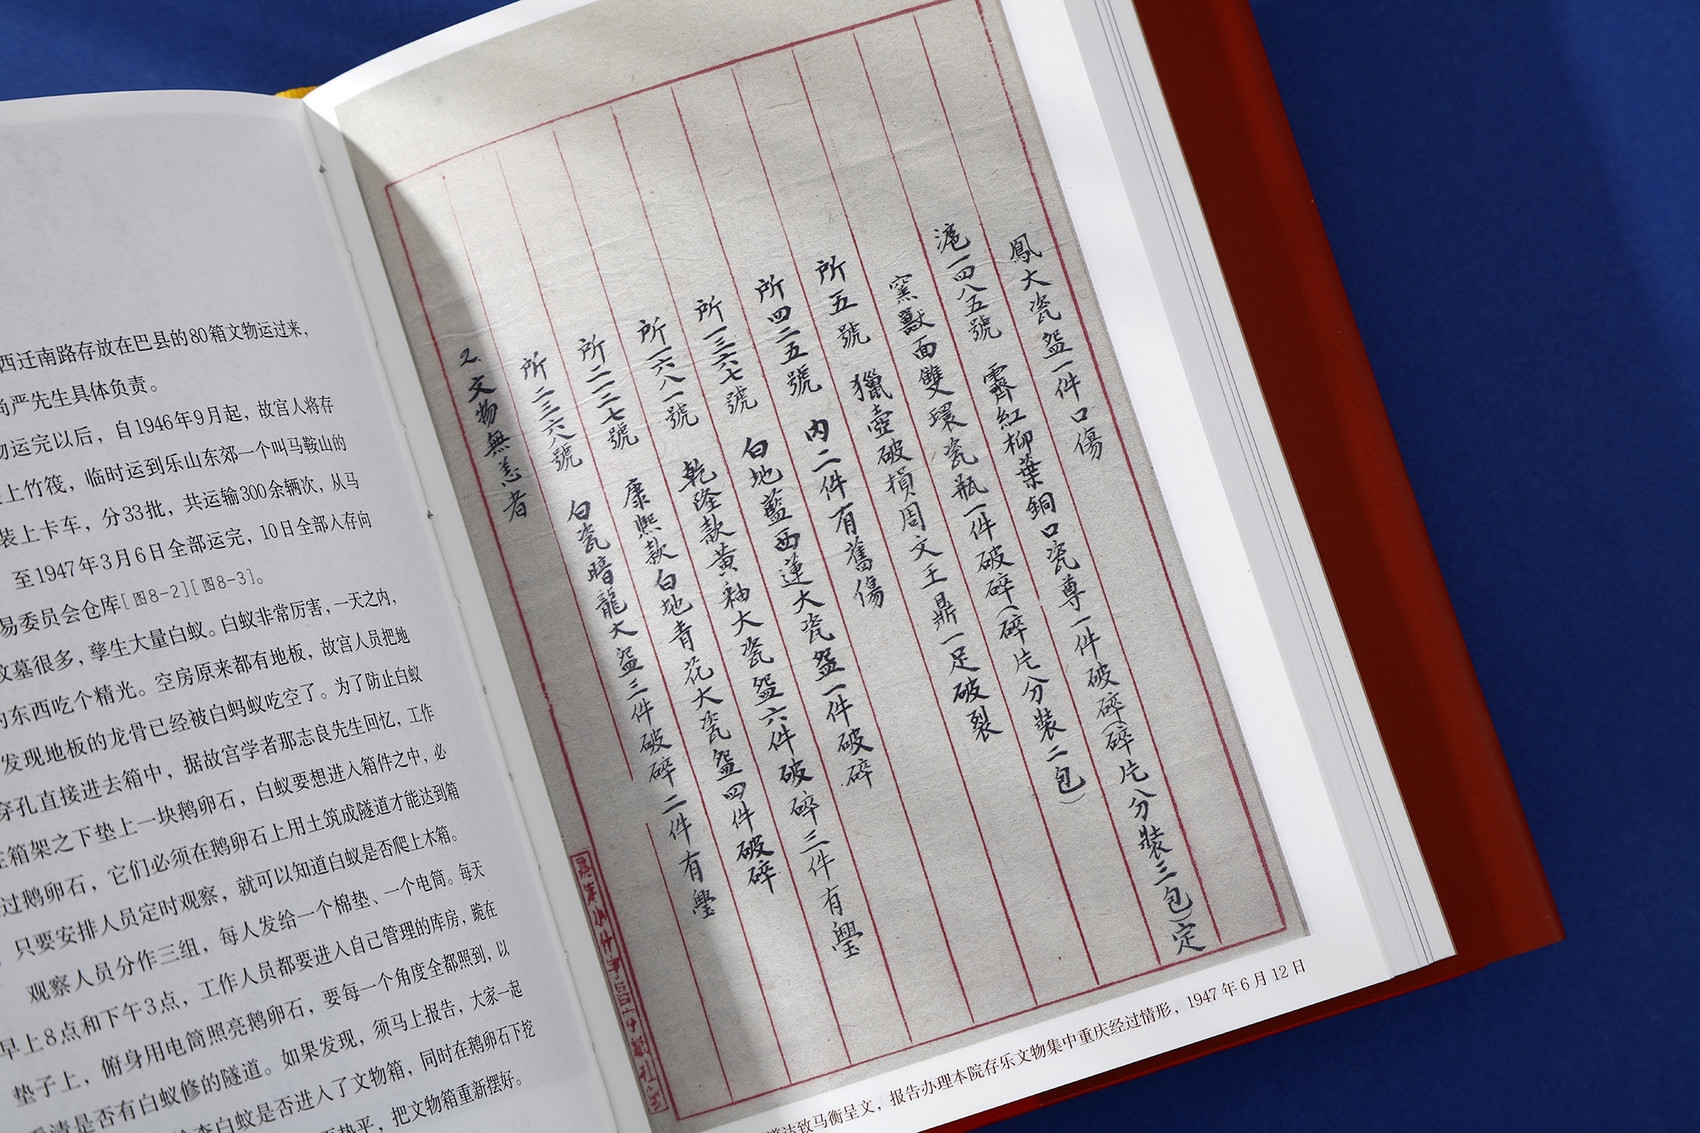 西迁南路存放在巴县的80箱文物运过来，
尚严先生具体负责。
物运完以后，自1946年9月起，故宫人将存
上竹筏，临时运到乐山东郊一个叫马鞍山的
装上卡车，分33批，共运输300余辆次，从马
至1947年3月6日全部运完，10日全部入存向
易委员会仓库[图8-2][图8-3]。
坟墓很多，孳生大量白蚁。白蚁非常厉害，一天之内，
的东西吃个精光。空房原来都有地板，故宫人员把地
发现地板的龙骨已经被白蚂蚁吃空了。为了防止白蚁
穿孔直接进去箱中，据故宫学者那志良先生回忆，工作
在箱架之下垫上一块鹅卵石，白蚁要想进入箱件之中，必
过鹅卵石，它们必须在鹅卵石上用土筑成隧道才能达到箱
只要安排人员定时观察，就可以知道白蚁是否爬上木箱。
观察人员分作三组，每人发给一个棉垫、一个电筒。每天
早上8点和下午3点，工作人员都要进入自己管理的库房，跪在
垫子上，俯身用电筒照亮鹅卵石，要每一个角度全都照到，以
看清是否有白蚁修的隧道。如果发现，须马上报告，大家一起
检查白蚁是否进入了文物箱，同时在鹅卵石下挖
垫平，把文物箱重新摆好。
鳳大瓷盌一件口傷
滬一四八五號 霽紅柳葉銅口瓷尊一件破碎(碎片分裝三包)定
窯獸面雙環瓷瓶一件破碎(碎片分裝二包)
所五號 獵壺破損周文王鼎一足破裂
所四二五號 内二件有舊傷
所一三六七號 白地藍西蓮大瓷盌一件破碎
所一六八一號 乾隆款黃釉大瓷盌六件破碎三件有璺
所二二二七號 康熙款白地青花大瓷盌四件破碎
所二三六八號 白瓷暗龍大盌三件破碎二件有璺
2.文物無恙者
道达致马衡呈文，报告办理本院存乐文物集中重庆经过情形，1947年6月12日